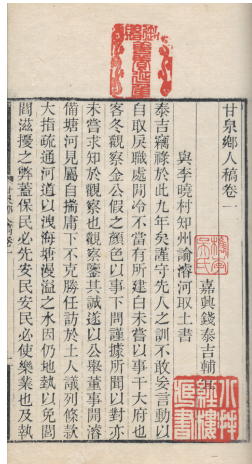 甘泉鄉人稿卷一
嘉興錢泰吉輔宜
與李曉村知州論濬河取土書
泰吉竊祿於此九年矣謹守先人之訓不敢妄言動以
自取戾職處閒冷不當有所建白未嘗以事干大府也
客冬觀察金公假之顏色以事下問謹據所聞以對亦
未嘗求知於觀察也觀察鑒其誠遂以公舉董事開濬
備塘河見屬自揣庸下不克勝任訪於土人議列條款
大指疏通河道以洩海塘漫溢之水因仍地埶以免閭
閻滋擾之弊蓋保民必先安民安民必使樂業也及執